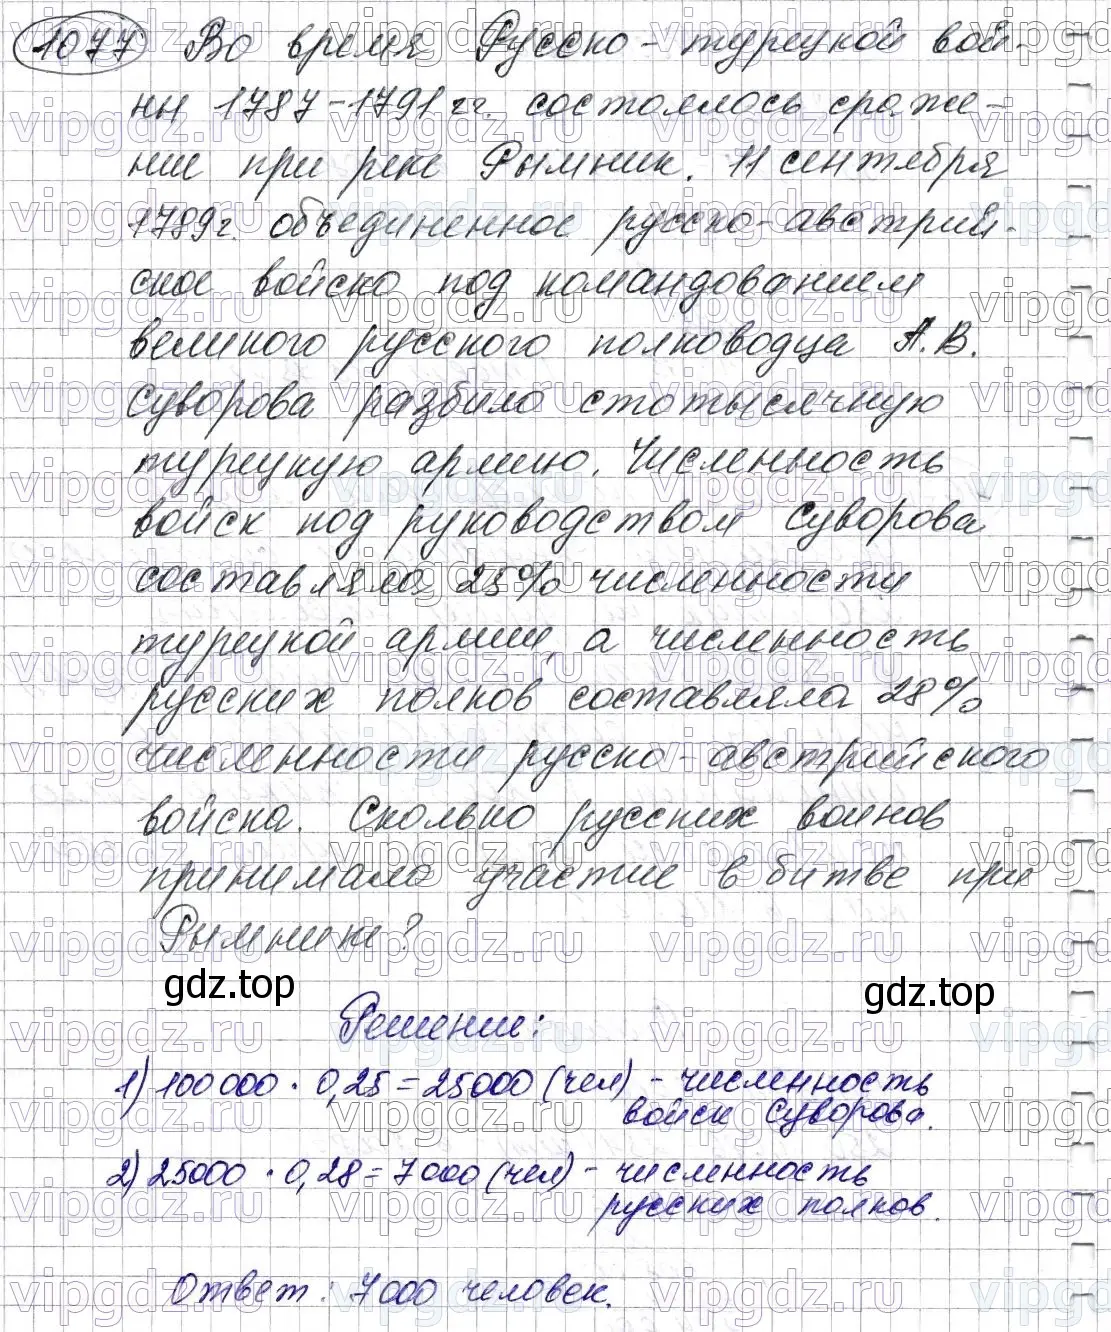 1077 Во время Русско-турецкой вой-
ны 1787-1791 гг. состоялось сраже-
ние при реке Рымник. 11 сентября
1789г. объединенное русско-австрий-
ское войско под командованием
великого русского полководца А.В.
Суворова разбило стотысячную
турецкую армию. Численность
войск под руководством Суворова
составляла 25% численности
турецкой армии, а численность
русских полков составляла 28%
численности русско-австрийского
войска. Сколько русских воинов
принимало участие в битве при
Рымнике?
gdz.top gdz.top
Решение:
1) 100 000 · 0,25 = 25000 (чел) - численность
войск Суворова.
2) 25000 · 0,28 = 7000 (чел) - численность
русских полков.
Ответ: 7000 человек.